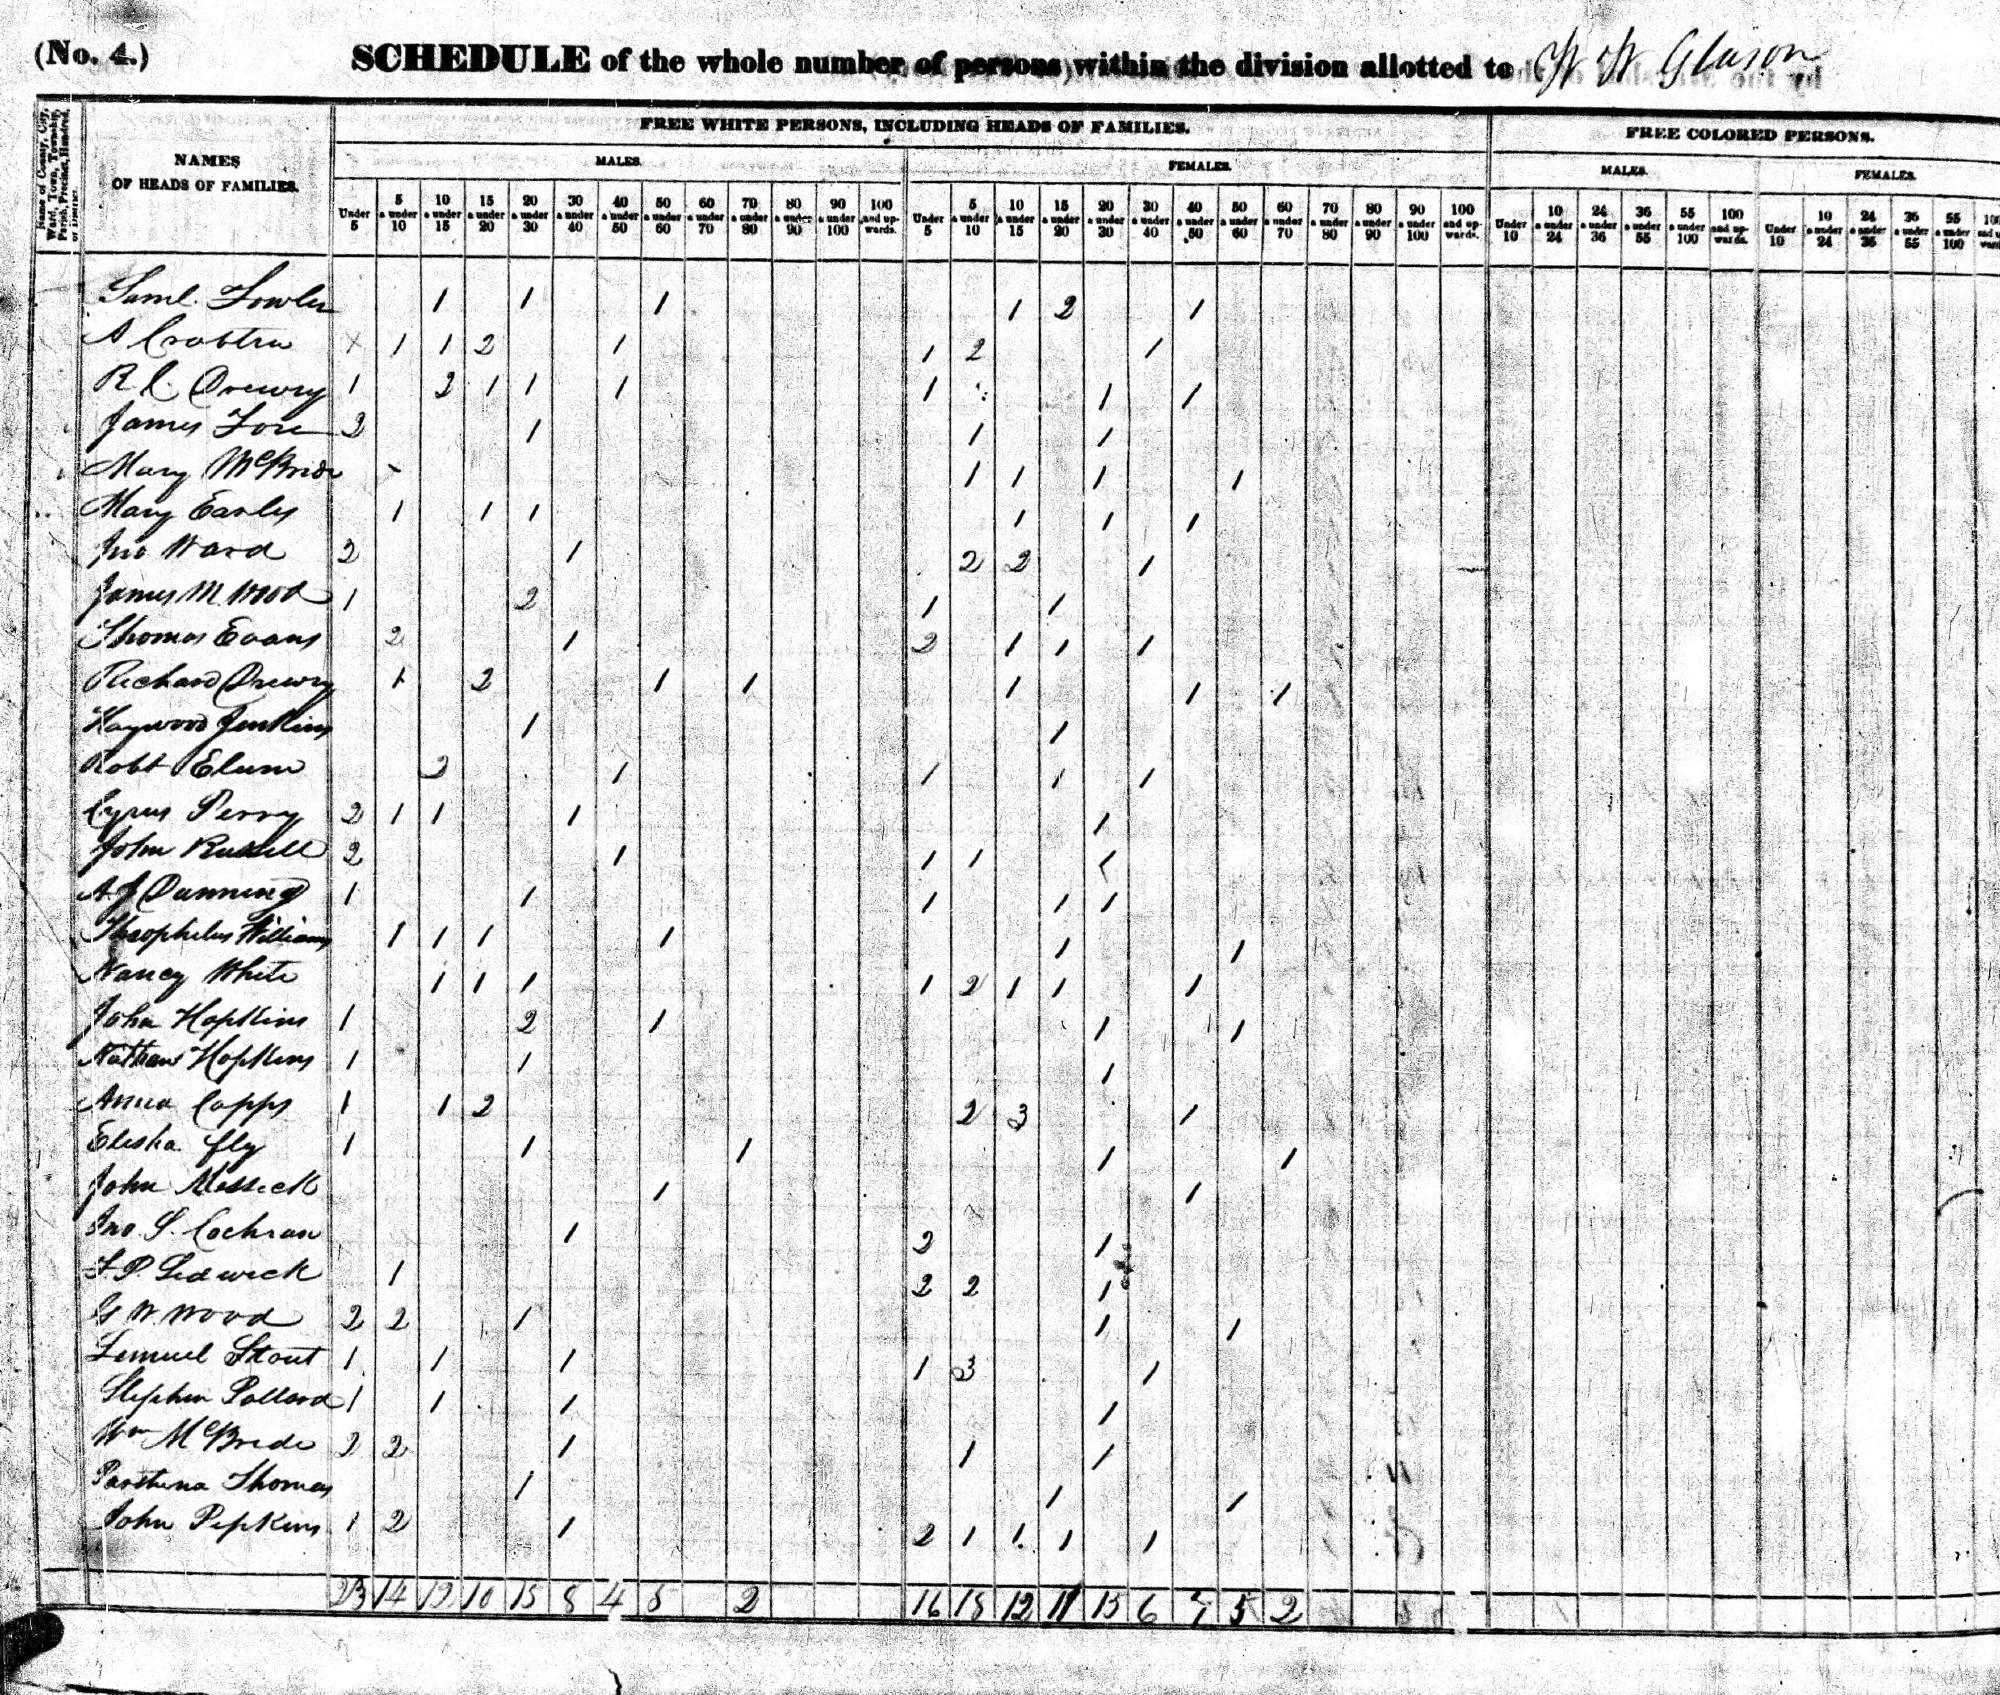 (No. 4.) SCHEDULE of the whole number of persons within the division allotted to W W Gleason
Name of County, City, Ward, Town, Township, Parish, Precinct, Hundred, or District.
NAMES OF HEADS OF FAMILIES.
FREE WHITE PERSONS, INCLUDING HEADS OF FAMILIES. FREE COLORED PERSONS.
MALES. FEMALES. MALES. FEMALES.
Under 5 5 & under 10 10 & under 15 15 & under 20 20 & under 30 30 & under 40 40 & under 50 50 & under 60 60 & under 70 70 & under 80 80 & under 90 90 & under 100 100 and upwards. Under 5 5 & under 10 10 & under 15 15 & under 20 20 & under 30 30 & under 40 40 & under 50 50 & under 60 60 & under 70 70 & under 80 80 & under 90 90 & under 100 100 and upwards. Under 10 10 & under 24 24 & under 36 36 & under 55 55 & under 100 100 and upwards. Under 10 10 & under 24 24 & under 36 36 & under 55 55 & under 100
Saml. Fowler 1 1 1 1 2 1
A Crabtree 1 1 2 1 1 2 1
R C Drewry 1 2 1 1 1 1 1 1
James Fore 2 1 1 1
Mary McBride 1 1 1 1
Mary Earles 1 1 1 1 1 1
Jno Ward 2 1 2 2 1
James M. Wood 1 2 1 1
Thomas Evans 2 1 2 1 1 1
Richard Drewry 1 2 1 1 1 1 1
Haywood Jenkins 1 1
Robt Elum 2 1 1 1 1
Cyrus Perry 2 1 1 1 1
John Russell 2 1 1 1 1
A J Dunning 1 1 1 1 1
Theophilus Williams 1 1 1 1 1 1
Nancy White 1 1 1 1 2 1 1 1
John Hopkins 1 2 1 1 1
Nathan Hopkins 1 1 1
Anna Capps 1 1 2 2 3 1
Elisha Fly 1 1 1 1 1
John Messick 1 1
Jno. S. Cochran 1 2 1
F. P. Sedwick 1 2 2 1
G W. Wood 2 2 1 1 1
Lemuel Stout 1 1 1 1 3 1
Stephen Pollard 1 1 1 1
Wm McBride 2 2 1 1 1
Parthena Thomas 1 1 1
John Pipkins 1 2 1 2 1 1 1 1
23 14 12 10 15 8 4 5 2 16 18 12 11 15 6 7 5 2